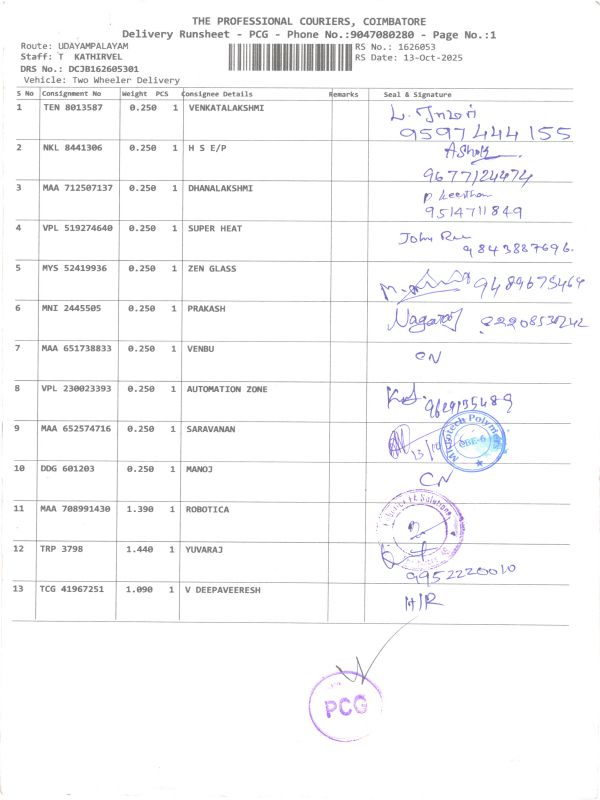 THE PROFESSIONAL COURIERS, COIMBATORE
Delivery Runsheet - PCG - Phone No.:9047080280 - Page No.:1
Route: UDAYAMPALAYAM RS No.: 1626053
Staff: T KATHIRVEL RS Date: 13-Oct-2025
DRS No.: DCJB162605301
Vehicle: Two Wheeler Delivery
S No Consignment No Weight PCS Consignee Details Remarks Seal & Signature
1 TEN 8013587 0.250 1 VENKATALAKSHMI
9597444155
2 NKL 8441306 0.250 1 H S E/P Ashok
9677124474
3 MAA 712507137 0.250 1 DHANALAKSHMI
9514711849
4 VPL 519274640 0.250 1 SUPER HEAT John
9843887696.
5 MYS 52419936 0.250 1 ZEN GLASS 9489675464
6 MNI 2445505 0.250 1 PRAKASH Nagaraj
7 MAA 651738833 0.250 1 VENBU CN
8 VPL 230023393 0.250 1 AUTOMATION ZONE 9629135489
9 MAA 652574716 0.250 1 SARAVANAN 13/10 Polymers CBE-6
10 DDG 601203 0.250 1 MANOJ CN
11 MAA 708991430 1.390 1 ROBOTICA Solutions
12 TRP 3798 1.440 1 YUVARAJ
9952220010
13 TCG 41967251 1.090 1 V DEEPAVEERESH H/R
PCG